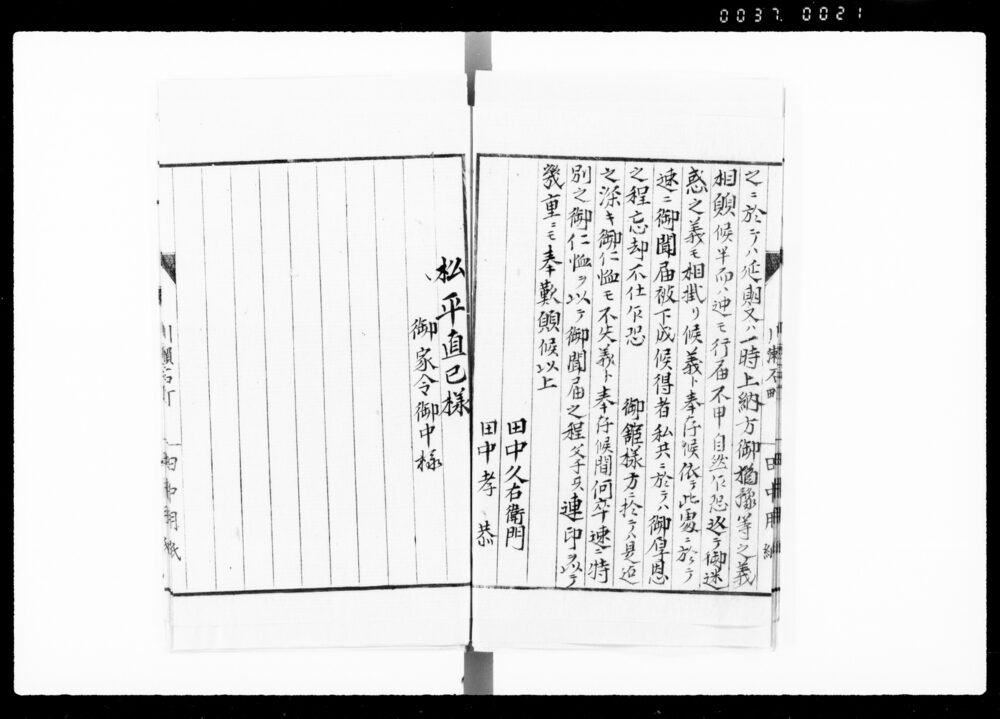 0037. 0021
之ニ於テハ延期又ハ一時上納方御猶豫等之義
相願候半而ハ迚モ行届不申自然乍恐返テ御迷
惑之義モ相掛リ候義ト奉存候依テ此處ニ於テ
速ニ御聞届被下成候得者私共ニ於テハ御厚恩
之程忘却不仕乍恐 御舘様方ニ於テハ是迄
之深キ御仁恤モ不失義ト奉存候間何卒速ニ特
別之御仁恤ヲ以テ御聞届之程父子共連印ヲ以テ
幾重ニモ奉歎願候以上
田中久右衛門
田中孝恭
松平直巳様
御家令御中様
川瀬石町 田中用紙